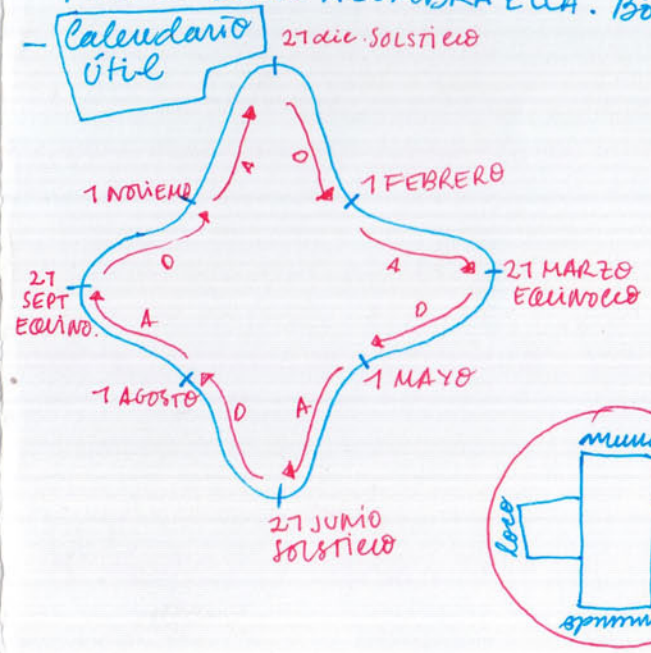 - Calendario
Útil
21 dic. SOLSTICIO
1 NOVIEMB
O
A
1 FEBRERO
O
A
21
SEPT
EQUINO.
21 MARZO
EQUINOCCIO
A
D
1 AGOSTO
1 MAYO
D
A
21 JUNIO
SOLSTICIO
loco
mundo